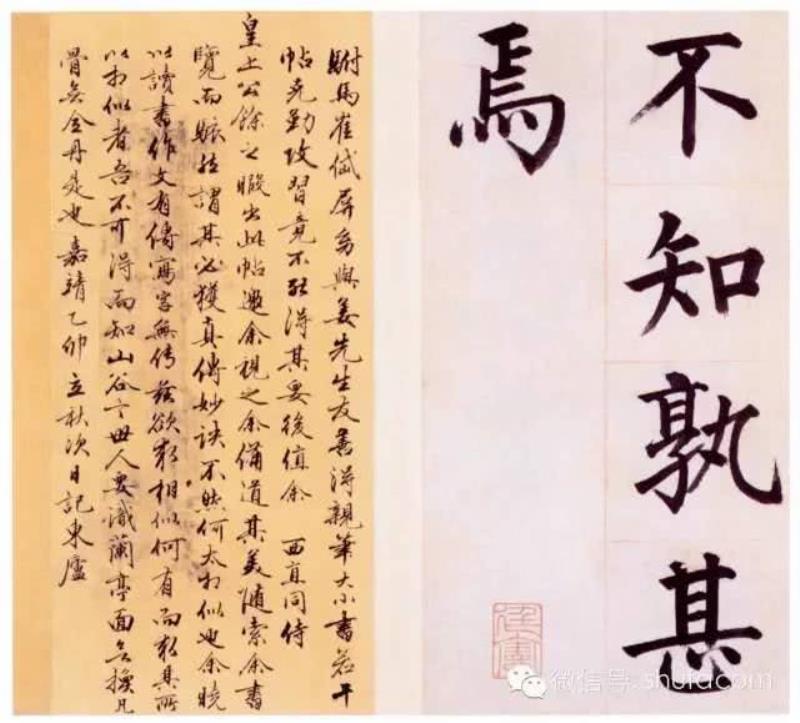 不知孰甚
焉
駙馬崔岱屏翁與姜先生友善得親筆大小書若干
帖克勤攻習竟不能得其要後值余 西直同侍
皇上公餘之暇出此帖邀余視之余備道其美隨索余書
覽而然謂其必獲真傳妙訣不然何太相似也余曉
以讀書作文有傳寫字無傳茲欲求相似何有而求其所
以相似者吾不可得而知山谷言世人要識蘭亭面無換凡
骨無金丹是也嘉靖乙卯立秋次日記東廬
微信号: shufacom